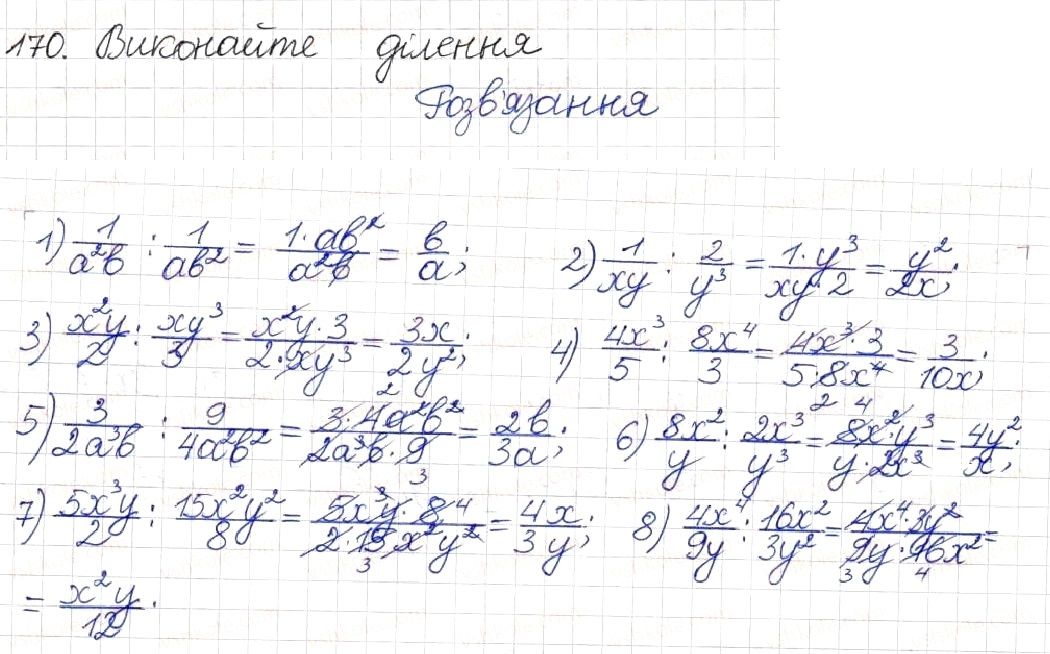 170. Виконайте ділення
Розв'язання
1) 1/a²b : 1/ab² = 1·ab²/a²b = b/a; 2) 1/xy : 2/y³ = 1·y³/xy·2 = y²/2x;
3) x²y/2 : xy³/3 = x²y·3/2·xy³ = 3x/2y²; 4) 4x³/5 : 8x⁴/3 = 4x³·3/5·8x⁴ = 3/10x;
2
5) 3/2a³b : 9/4a²b² = 3·4a²b²/2a³b·9 = 2b/3a; 6) 8x²/y : 2x³/y³ = 8x²·y³/y·2x³ = 4y²/x;
2 4
3
7) 5x³y/2 : 15x²y²/8 = 5x³y·8/2·15x²y² = 4x/3y; 8) 4x⁴/9y : 16x²/3y² = 4x⁴·3y²/9y·16x² =
4
3 3 4
= x²y/12.